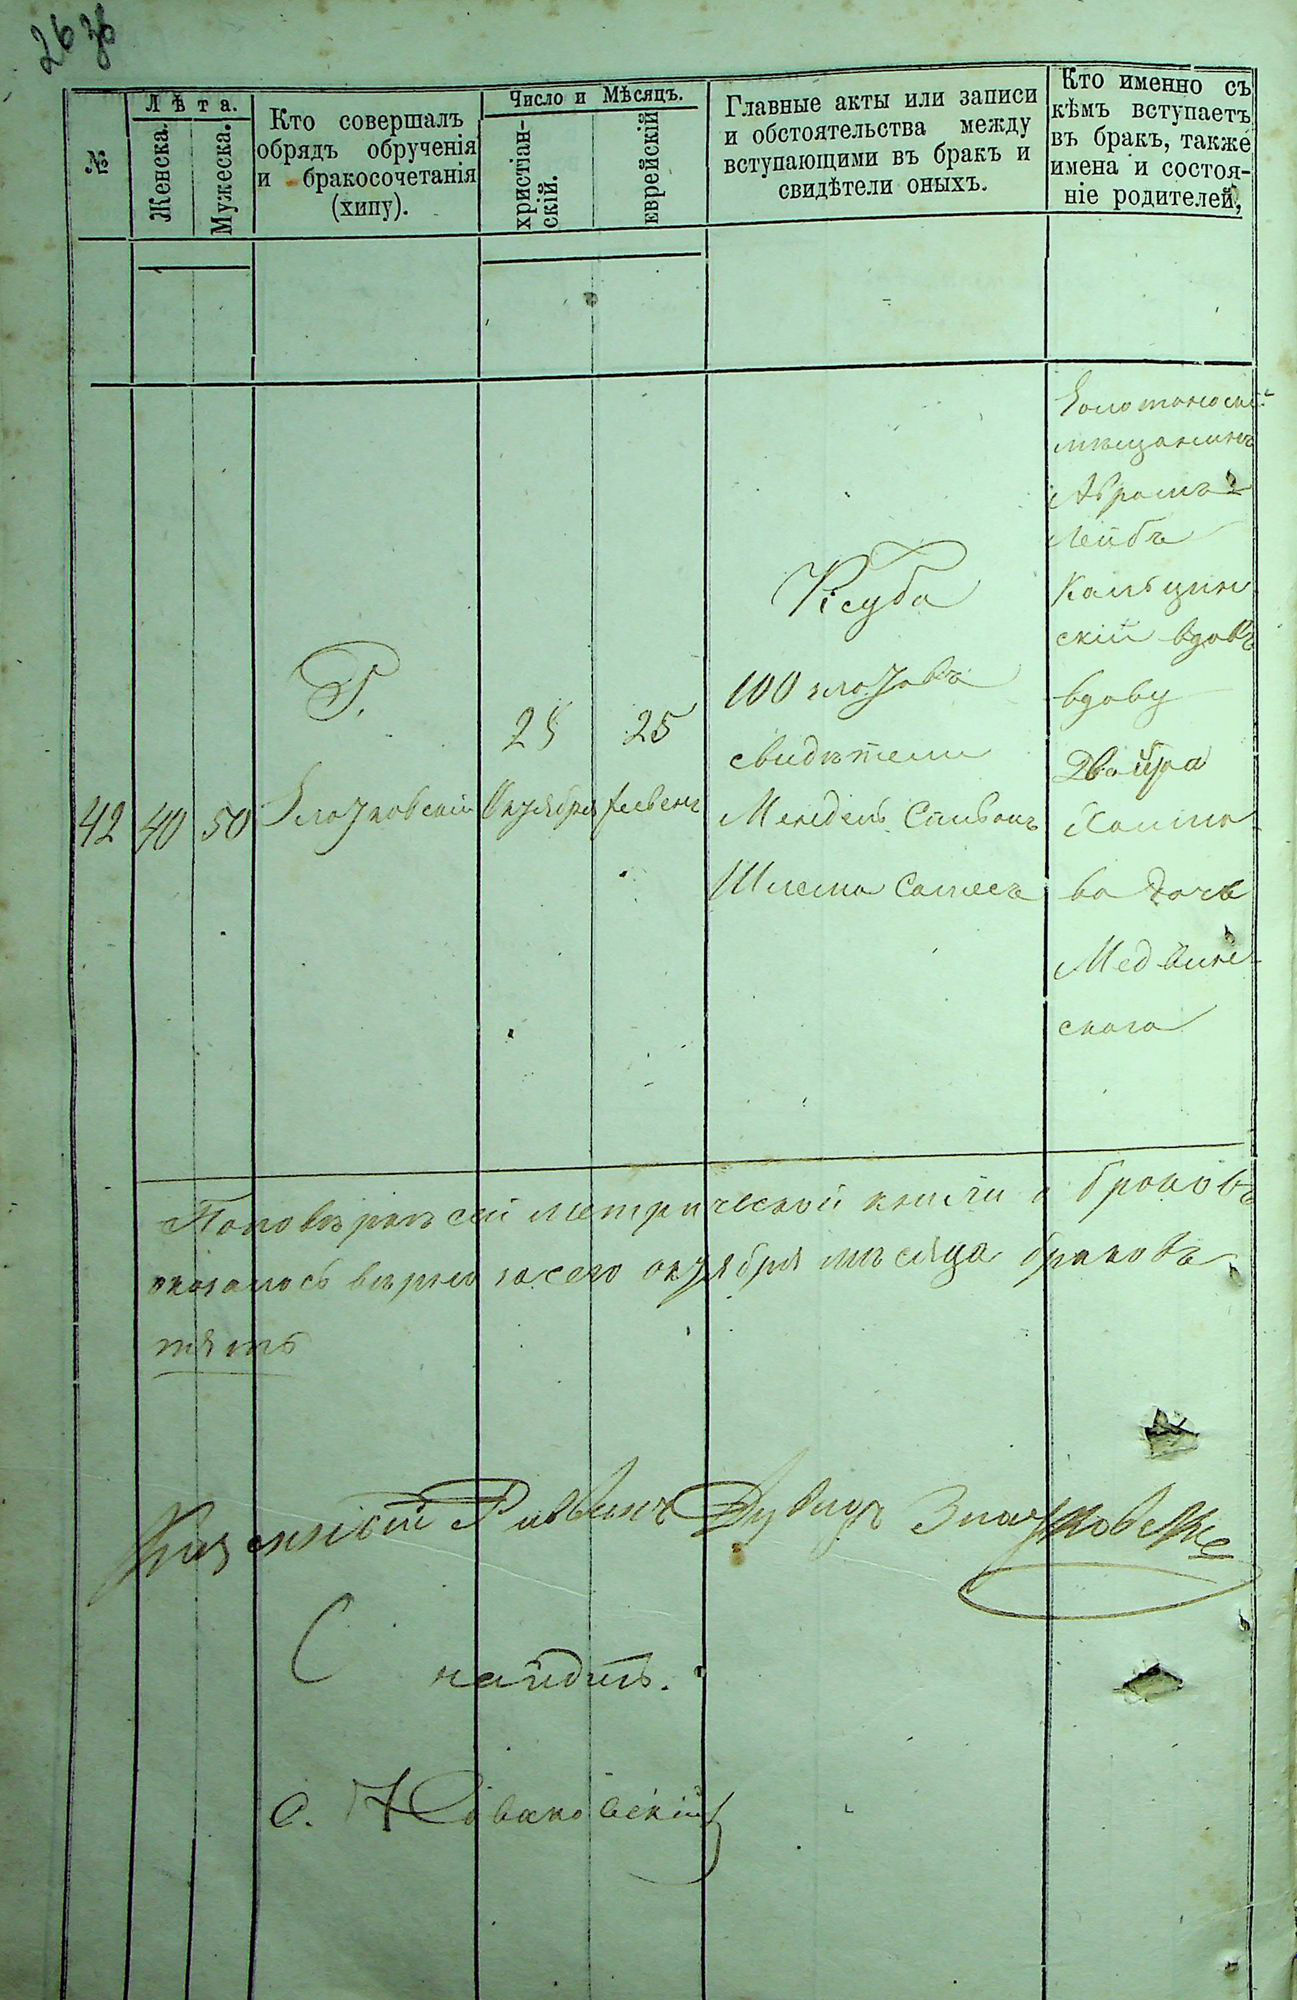 263б
№
Лѣта.
Женска.
Мужеска.
Кто совершалъ
обрядъ обрученія
и бракосочетанія
(хипу).
Число и Мѣсяцъ.
христіан-
скій.
еврейскій
Главные акты или записи
и обстоятельства между
вступающими въ бракъ и
свидѣтели оныхъ.
Кто именно съ
кѣмъ вступаетъ
въ бракъ, также
имена и состоя-
ніе родителей,
42
40
50
Р.
Златковскій
28
Октября
25
Хесвенъ
Ксуба
100 злотовъ
свидѣтели
Мендель
Шлема
Золотоносскій
мѣщанинъ
Абрамъ
Лейбъ
Кальцин
скій вдовъ
вдову
Двойра
Хаимо
ва дочь
Медвин
скаго
По повѣркѣ сей метрической книги о браковъ
оказалось вѣрно за сего октября мѣсяца браковъ
пять
Казенный Раввинъ Дувидъ Златковскій
С
С. Новаковскій